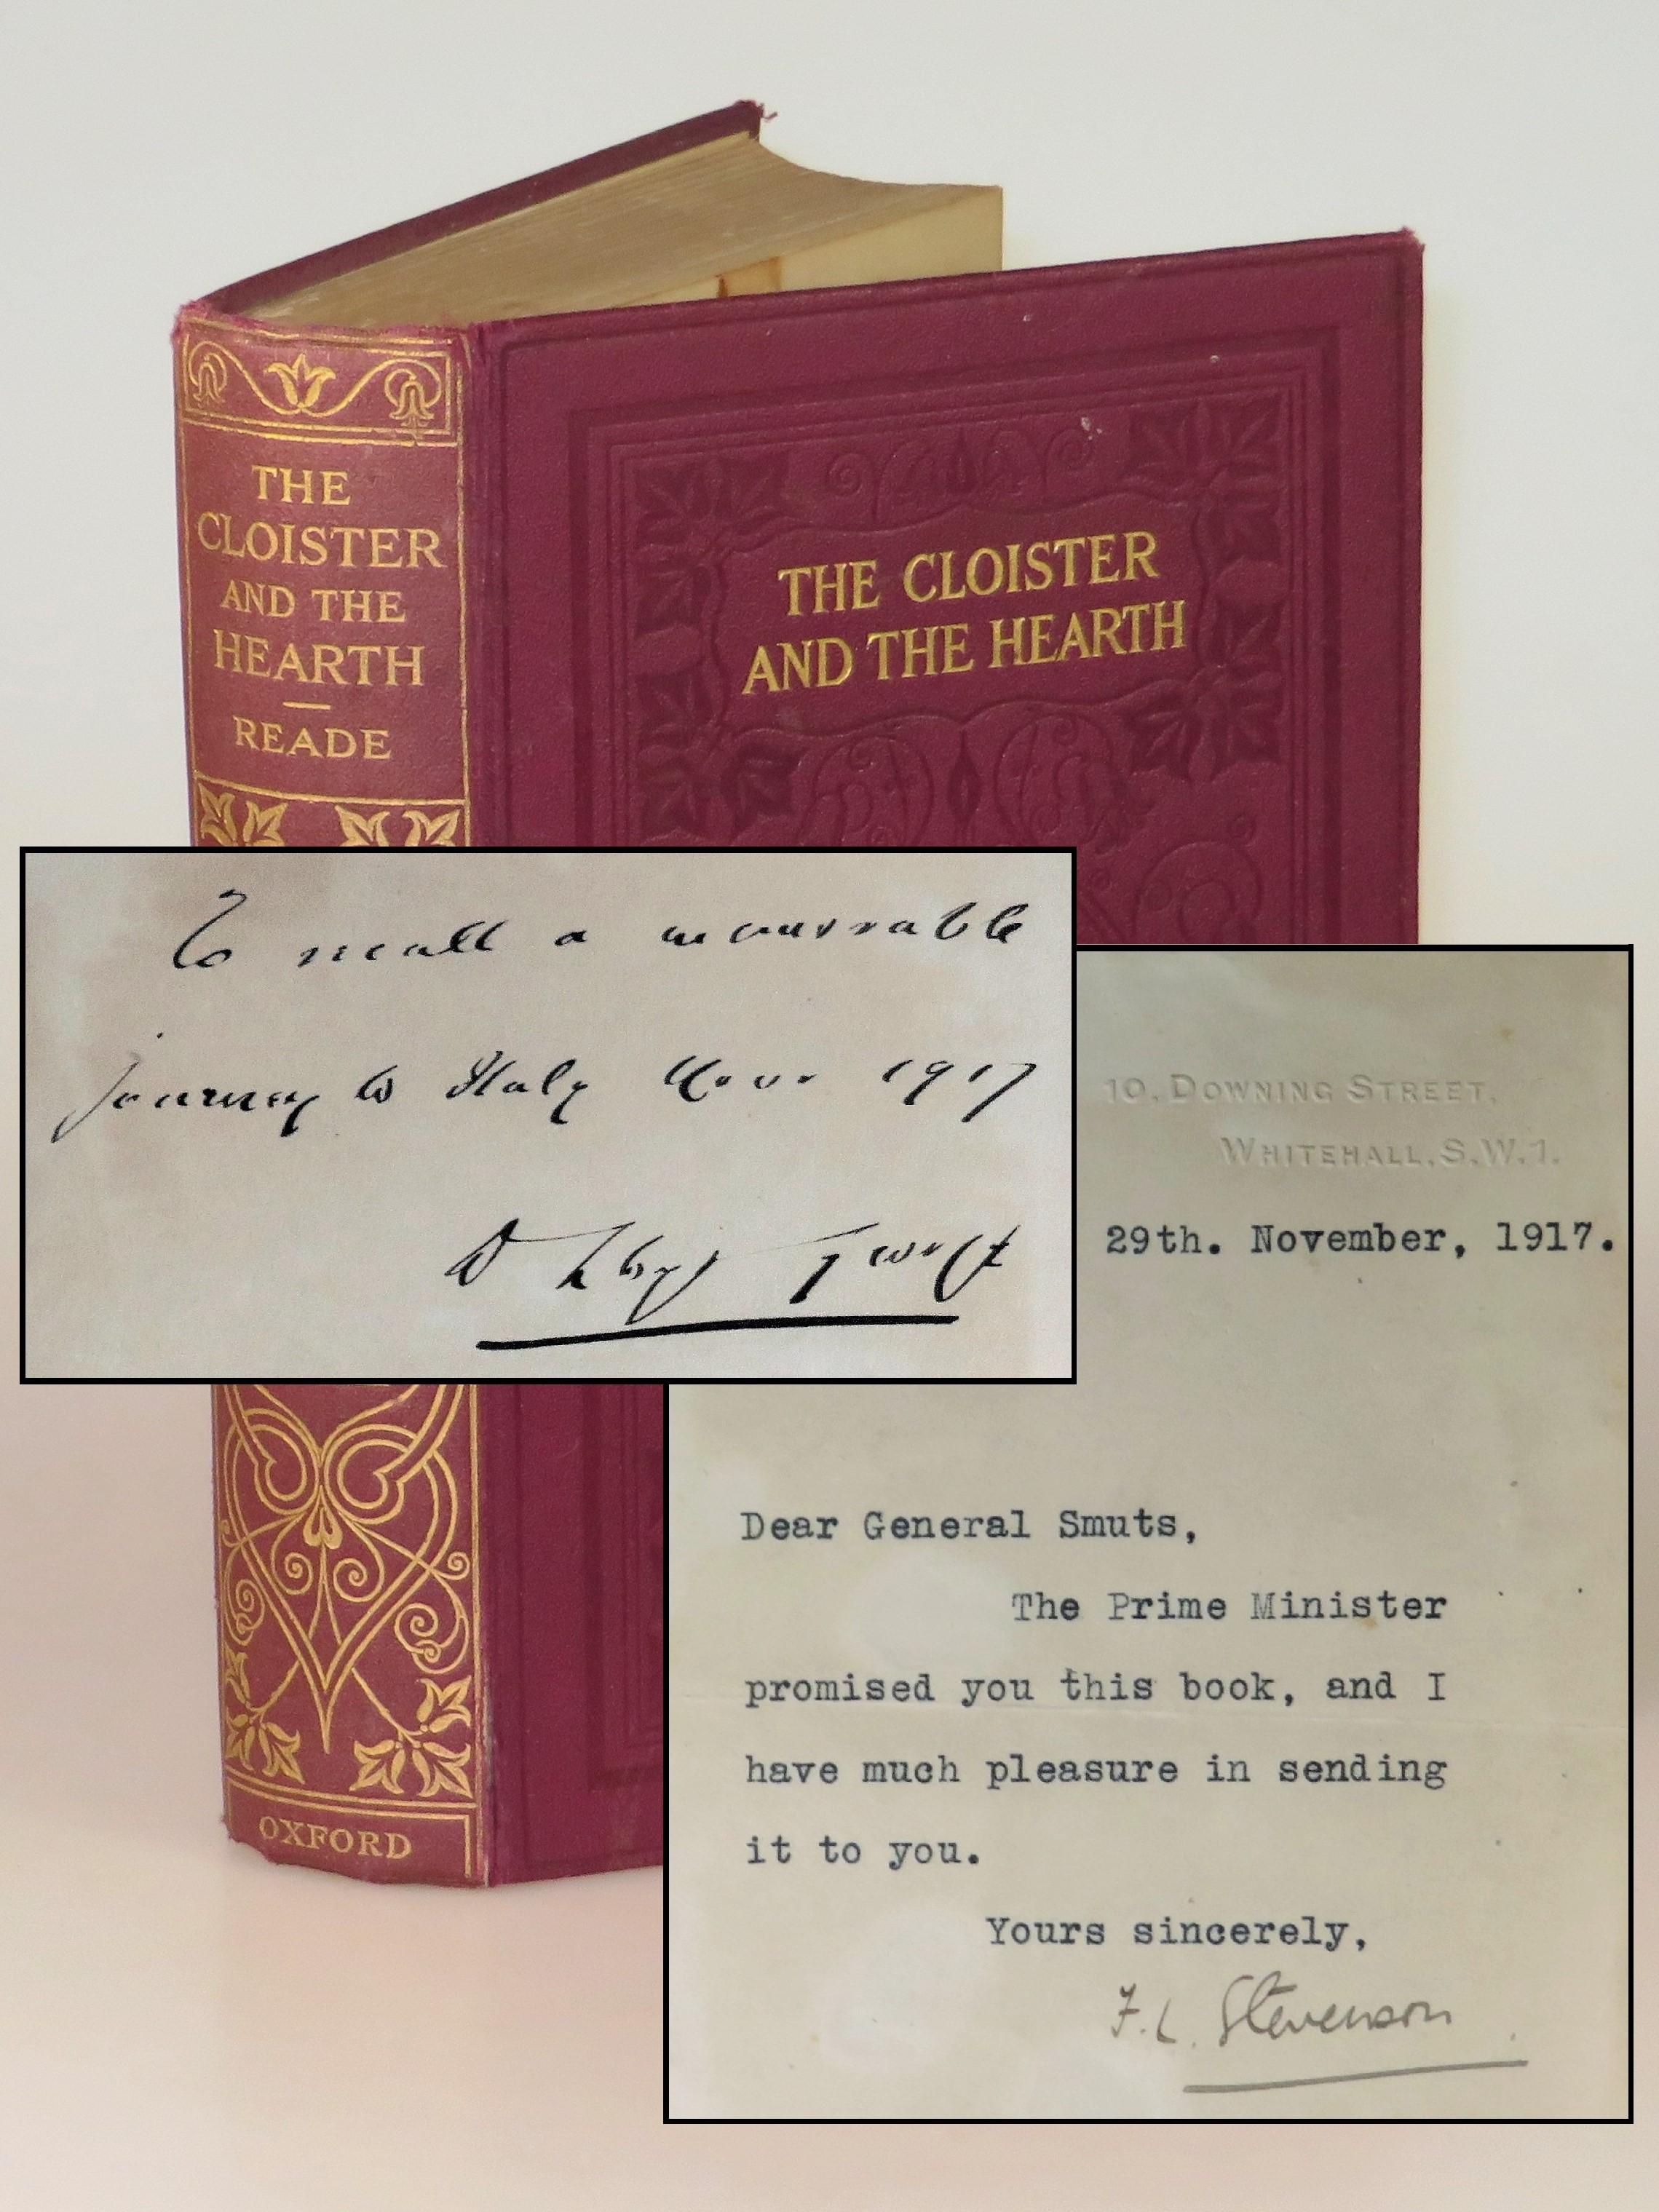 THE
CLOISTER
AND THE
HEARTH
READE
OXFORD
THE CLOISTER
AND THE HEARTH
To recall a memorable
journey to Italy Nov. 1917
D Lloyd George
10, DOWNING STREET,
WHITEHALL, S.W.1.
29th. November, 1917.
Dear General Smuts,
The Prime Minister
promised you this book, and I
have much pleasure in sending
it to you.
Yours sincerely,
F.L. Stevenson